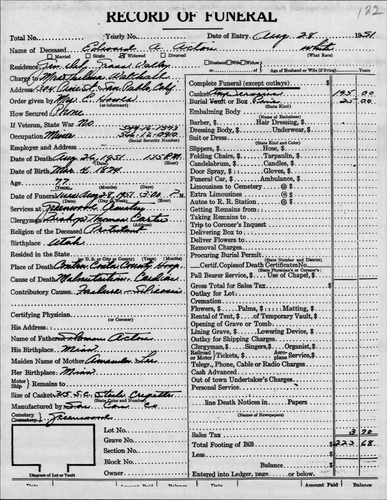 182
RECORD OF FUNERAL
Total No. Yearly No. Date of Entry Aug 28 1951
Name of Deceased A. Acton white
(What Race)
Married Single Widowed Divorced
Residence Grass Valley Husband Wife Widow of
Age of Husband or Wife (if living)
Charge to Mrs.
Address San Pablo, Calif
Order given by Mrs. E.
How Secured Phone
If Veteran, State War No
Occupation Miner
(Social Security Number)
Employer and Address
Date of Death Aug 26, 1951 P.M.
Date of Birth 1874
Age 77
Date of Funeral Aug 28, 1951
Services at Greenwood Cemetery
Clergyman Bishop Thomas Carter
Religion of the Deceased Protestant
Birthplace Utah
Resided in the State
(U.S. or County or City)
Place of Death Contra Costa County Hosp.
Cause of Death
Contributory Causes Silicosis
Certifying Physician
(or Coroner)
His Address
Name of Father Acton
His Birthplace Miss
Maiden Name of Mother Amanda Lee
Her Birthplace Miss
Motor Ship Remains to
Size of Casket
(State Color and Number)
Manufactured by Co
Cemetery Crematory Greenwood
Lot No.
Grave No.
Section No.
Block No.
Owner
Diagram of Lot or Vault
Complete Funeral (except outlays) $
Casket 195 00
Burial Vault or Box Pine 25 00
(State Kind)
Embalming Body
(Name of Embalmer)
Barber, $ Hair Dressing, $
Dressing Body, $ Underwear, $
Suit or Dress
(State Kind and Color)
Slippers, $ Hose, $
Folding Chairs, $ Tarpaulin, $
Candelabrum, $ Candles, $
Door Spray, $ Gloves, $
Funeral Car, $ Ambulance, $
Limousines to Cemetery @ $
Extra Limousines @ $
Autos to R. R. Station @ $
Getting Remains from
Taking Remains to
Trip to Coroner's Inquest
Delivering Box to
Deliver Flowers to
Removal Charges
Procuring Burial Permit
(State Number and District)
Certif. Copies of Death Certificates No.
(State Physician's or Coroner's)
Pall Bearer Service, $ Use of Chapel, $
Gross Total for Sales Tax $
Outlay for Lot
Cremation
Flowers, $ Palms, $ Matting, $
Rental of Tent, $ of Temporary Vault, $
Opening of Grave or Tomb
Lining Grave, $ Lowering Device, $
Outlay for Shipping Charges
Clergyman, $ Singers, $ Organist, $
Railroad or Motor Tickets, $ Aeroplane Service, $
Telegr., Phone, Cable or Radio Charges
Cash Advanced
Out of town Undertaker's Charges
Personal Service
line Death Notices in Papers
(Names of Newspapers)
Sales Tax
Total Footing of Bill $ 68
Less
Balance $
Entered into Ledger, page or below
Amount Paid Balance